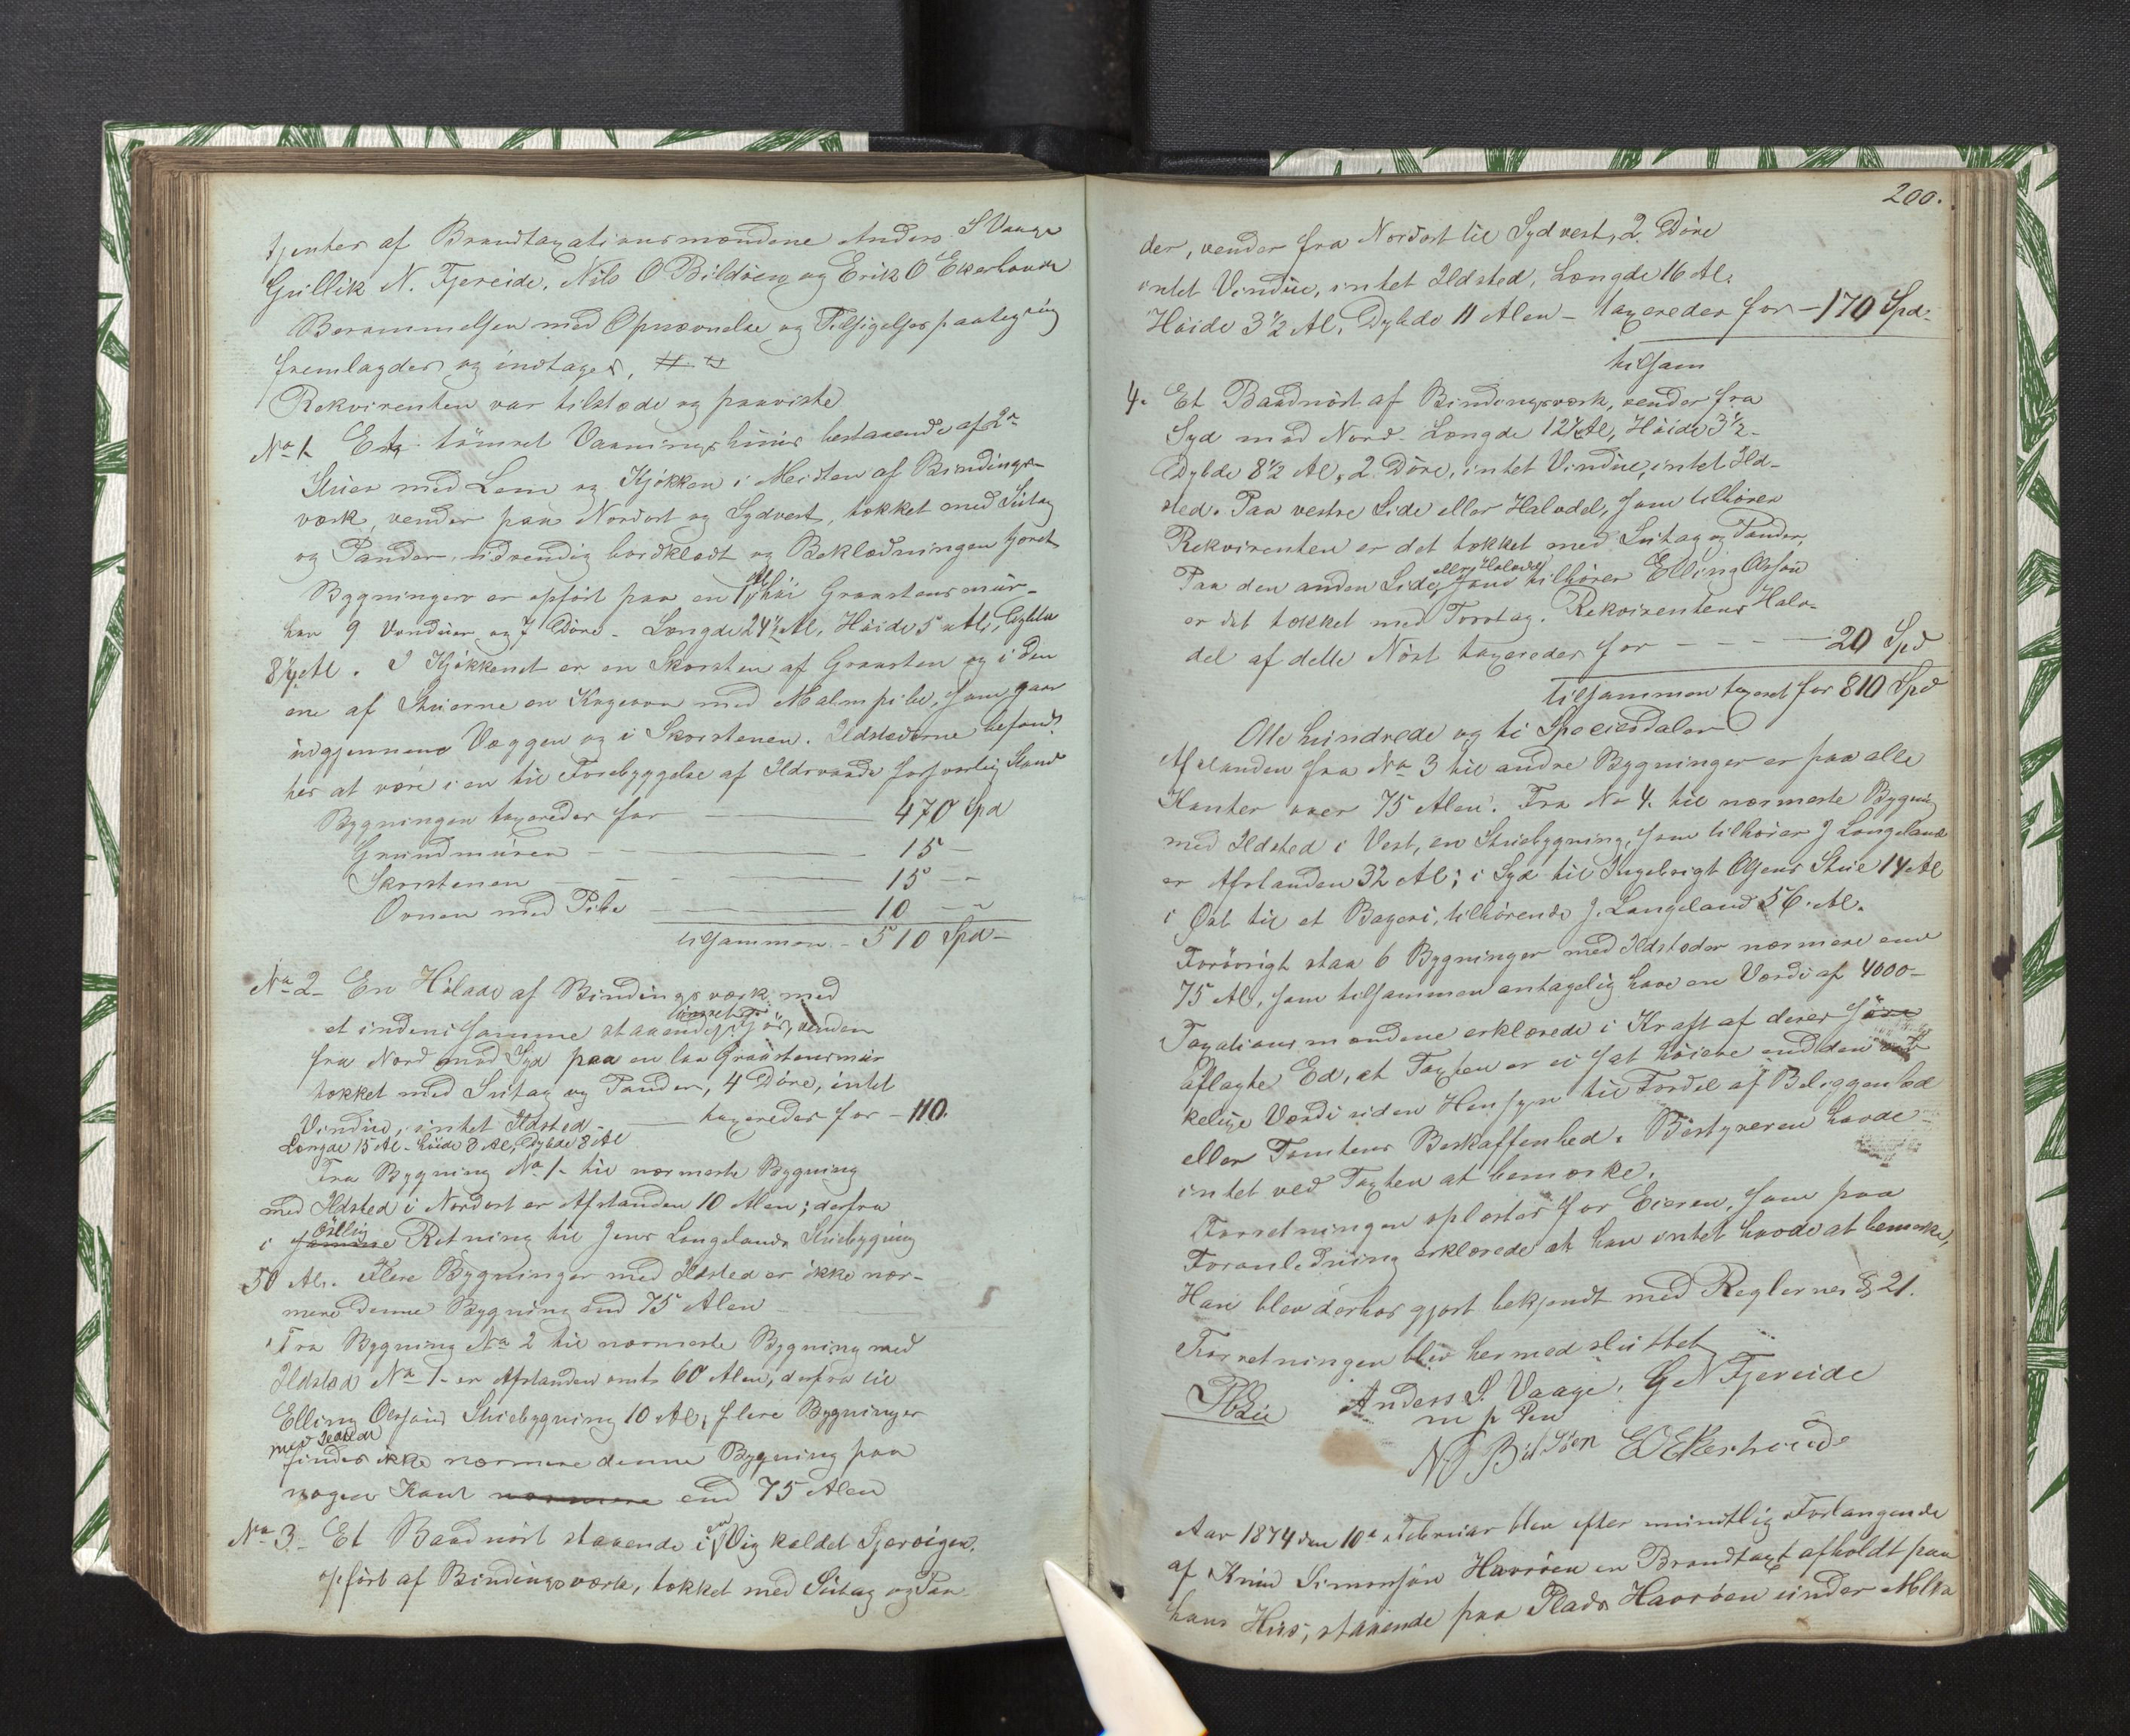 tjentes af Brandtaxationsmændene Anders S Vaage
Gullik N. Fjereide, Nils O Bildöen og Erik O Ekerhovde
Berammelsen med Opnævnelse og Tilsigelsespaategning
fremlagdes og indtages,
Rekvirenten var tilstede og paaviste
No 1. Et tömret Vaaningshuus bestaaende af 2de
Stuer med Lem og Kjökken i Meidten af Bindings-
værk, vender paa Nordost og Sydvest, tækket med Sutag
og Pander, udvendig bordklædt og Beklædningen tjæret
Bygningen er opfört paa en 1 Al höi Graastensmuur-
har 9 Vinduer og 7 Döre - Længde 24½ Al, Höide 5 Al, Dybde
8½ Al. I Kjökkenet er en Skorsten af Graasten og i den
ene af Stuerne en Kogeovn med Malmpibe, som gaar
udgjennem Væggen og i Skorstenen. Ildstederne befand-
tes at være i en til Forebyggelse af Ildsvaade forsvarlig Stand
Bygningen taxeredes for — 470 Spd
Grundmuren — 15 —
Skorstenen — 15 —
Ovnen med Pibe — 10 —
tilsammen - 510 Spd -
No 2 - En Hölade af Bindingsværk med
et indeni samme staaende tömret Fjös, vender
fra Nord mod Syd paa en lav Graastensmuur
tækket med Sutag og Pander, 4 Döre, intet
Vindue, intet Ildsted - — taxeredes for - 110.
Længde 15 Al - höide 3 Al, Dybde 8 Al
Fra Bygning No 1 - til nærmeste Bygning
med Ildsted i Nordost er Afstanden 10 Alen; derfra
i samme östlig Retning til Jens Langelands Stuebygning
50 Al. Flere Bygninger med Ildsted er ikke nær-
mere denne Bygning end 75 Alen
Fra Bygning No 2 til nærmeste Bygning med
Ildsted No 1 - er Afstanden omtr 60 Alen, derfra til
Elling Olssöns Stuebygning 10 Al; flere Bygninger
med Ildsteder
findes ikke nærmere denne Bygning paa
nogen Kant nærmere end 75 Alen
No 3 - Et Baadnöst staaende i en Vig kaldet Sjærvigen,
opfört af Bindingsværk, tækket med Sutag og Pan-
200.
der, vender fra Nordost til Sydvest, 2 Döre
intet Vindue, intet Ildsted, Længde 16 Al.
Höide 3½ Al, Dybde 11 Alen - taxeredes for - 170 Spd -
tilsam
4. Et Baadnöst af Bindingsværk, vender fra
Syd mod Nord - Længde 12½ Al, Höide 3½ -
Dybde 8½ Al, 2 Döre, intet Vindue, intet Ild-
sted. Paa vestre Side eller Halvdel, som tilhörer
Rekvirenten er det tækket med Sutag og Pander,
Paa den anden Side eller Halvdel, som tilhörer Elling Olssön
er det tækket med Torvtag. Rekvirentens Halv-
del af dette Nöst taxeredes for — 20 Spd
tilsammen taxeret for 810 Spd
Otte hundrede og ti Speciesdaler
Afstanden fra No 3 til andre Bygninger er paa alle
Kanter over 75 Alen. Fra No 4. til nærmeste Bygning
med Ildsted i Vest, en Stuebygning, som tilhörer J Langeland
er Afstanden 32 Al; i Syd til Ingebrigt Olsens Stue 14 Al
i Öst til et Bageri, tilhörende J. Langeland 56 Al.
Forövrigt staa 6 Bygninger med Ildsteder nærmere end
75 Al, som tilsammen antagelig have en Værdi af 4000 -
Taxationsmændene erklærede i Kraft af deres
aflagte Ed, at Taxten er ei sat höiere end den
kelige Værdi uden Hensyn til Fordel af Beliggenhed
eller Tomtens Beskaffenhed. Bestyreren havde -
intet ved Taxten at bemærke.
Forretningen oplæstes for Eieren, som paa
Foranledning erklærede at han intet havde at bemærke,
Han blev derhos gjort bekjendt med Reglernes § 21.
Forretningen blev hermed sluttet
Anders S. Vaage. G N Fjereide
m p Pen
N O Bildöen E O Ekerhovde
Aar 1874 den 10de Februar blev efter mundtlig Forlangende
af Knud Simonsön Havröen en Brandtaxt afholdt paa
hans Huus, staaende paa Plads Havröen under